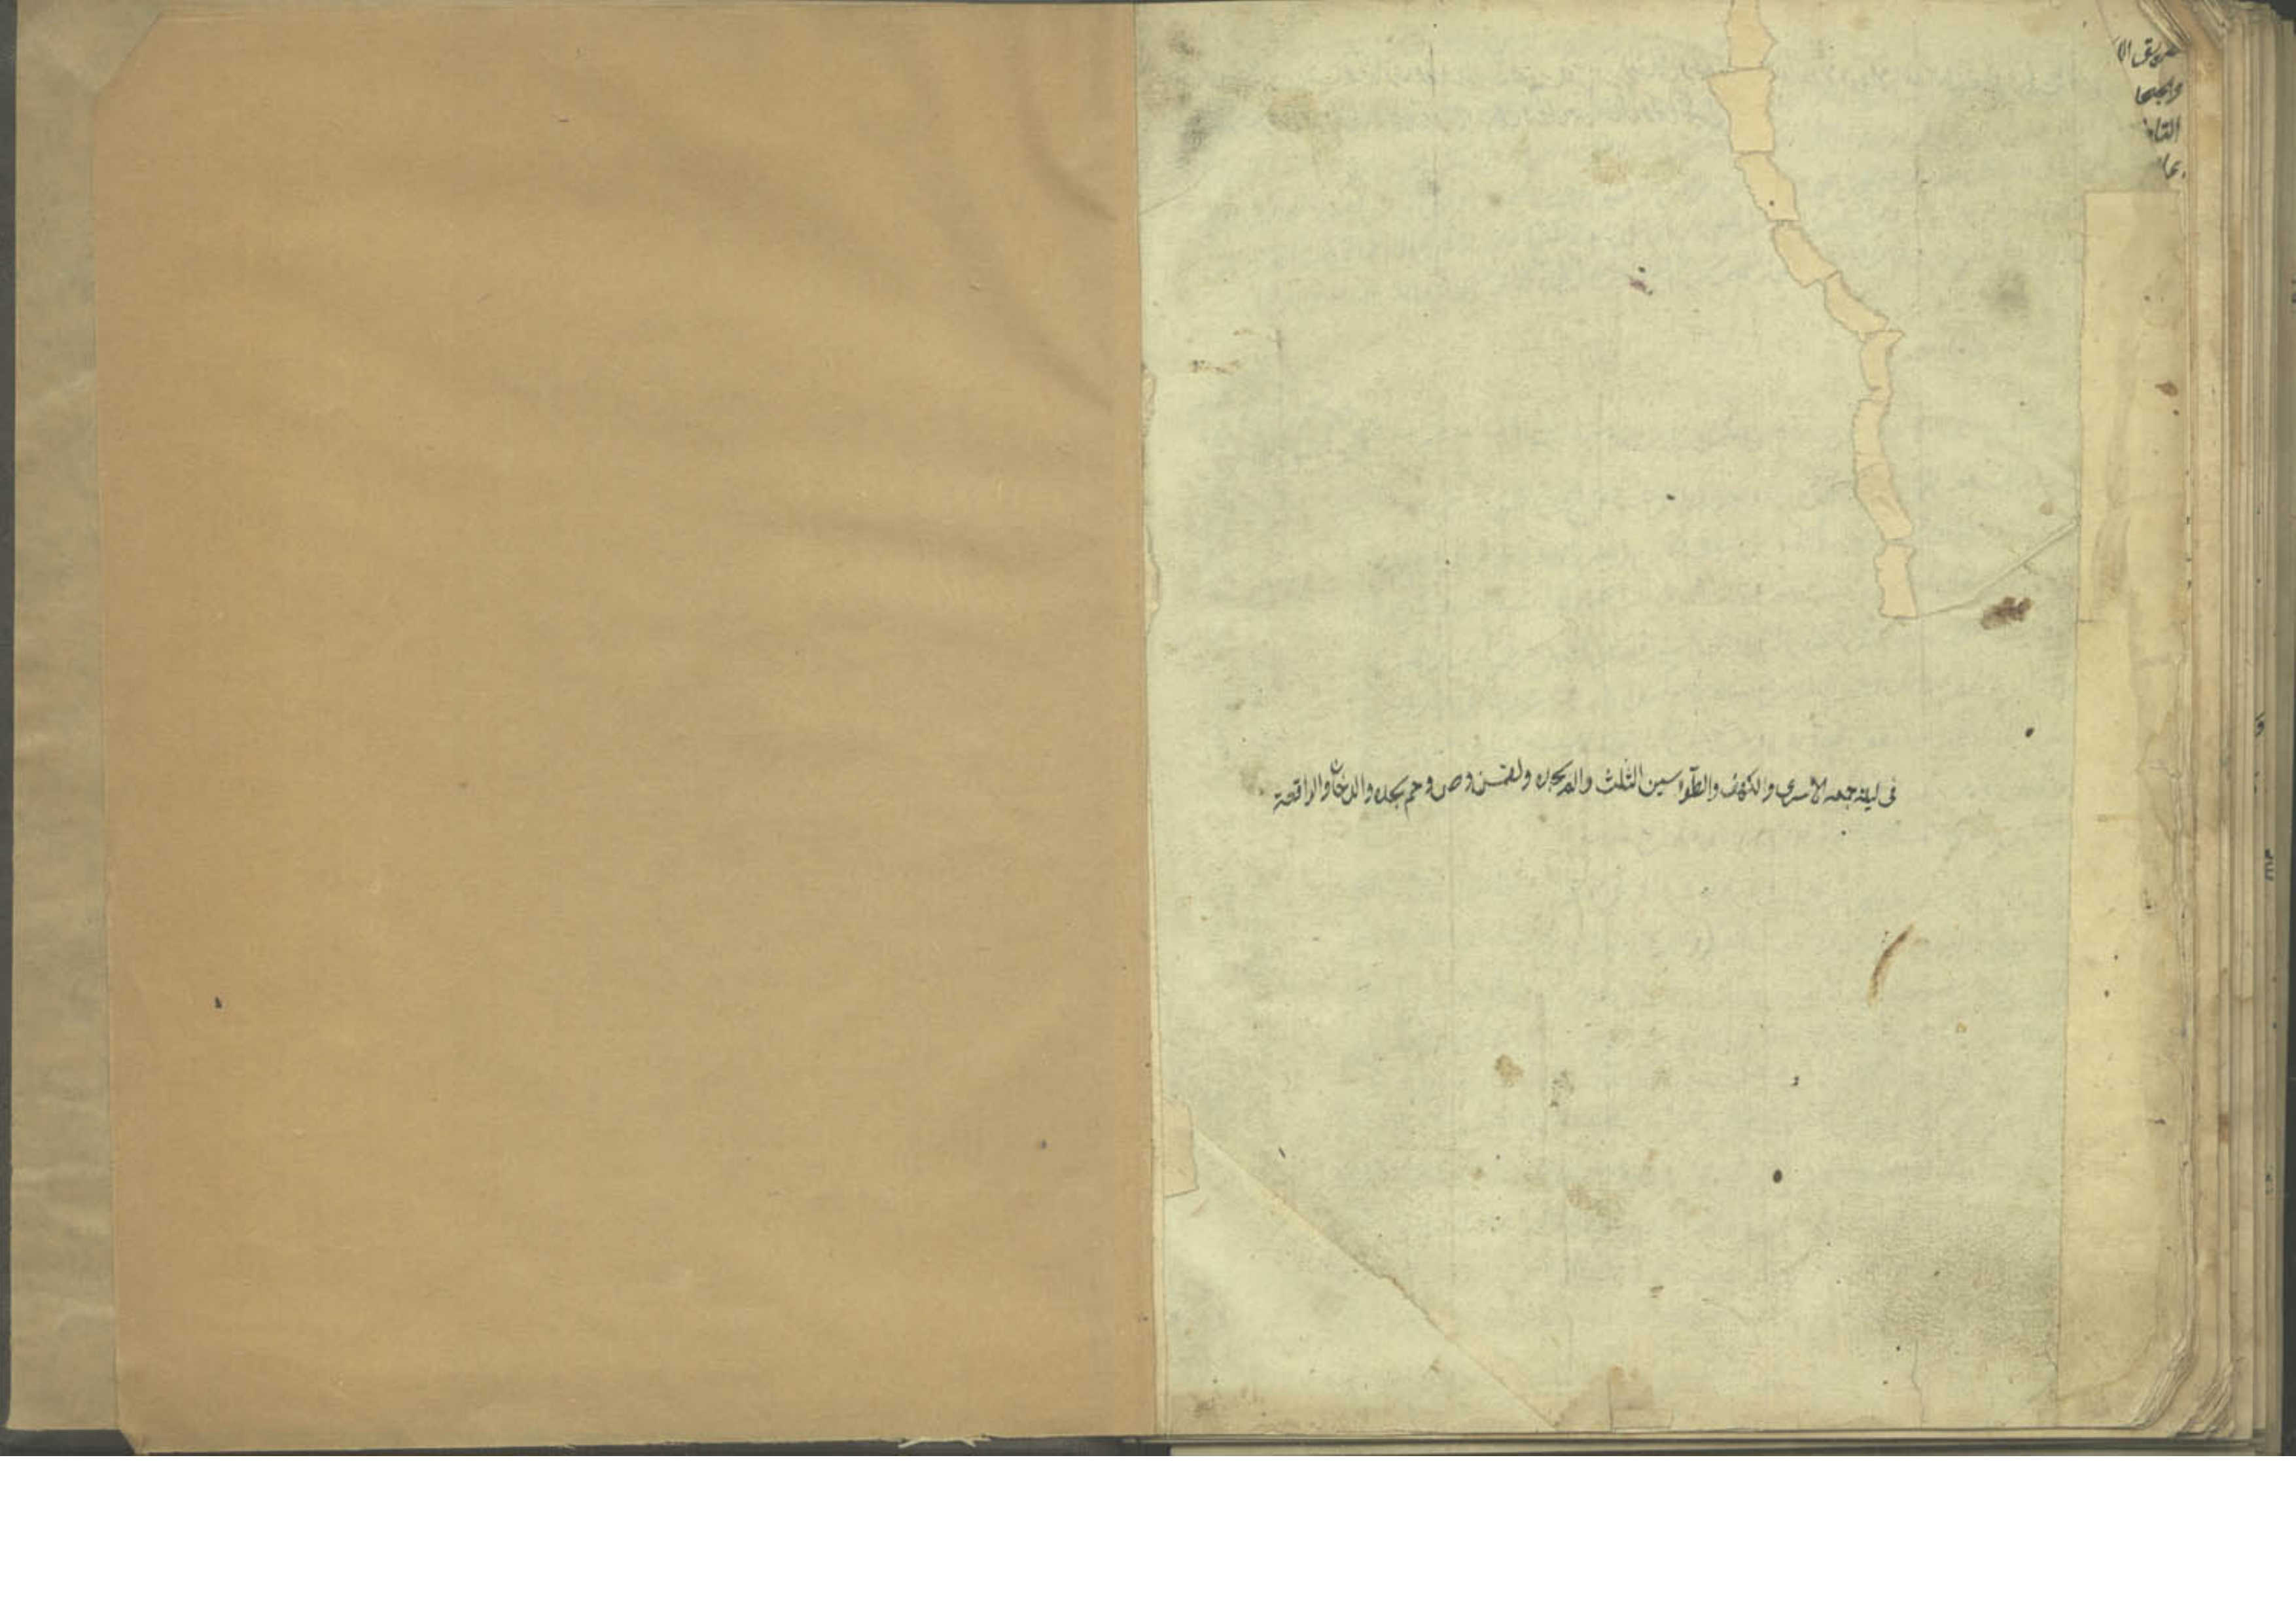 في ليلة جمعه الاسرى والكهف والطوٓاسين الثلث والم سجده ولقمن وص وحم سجده والدخان والواقعة